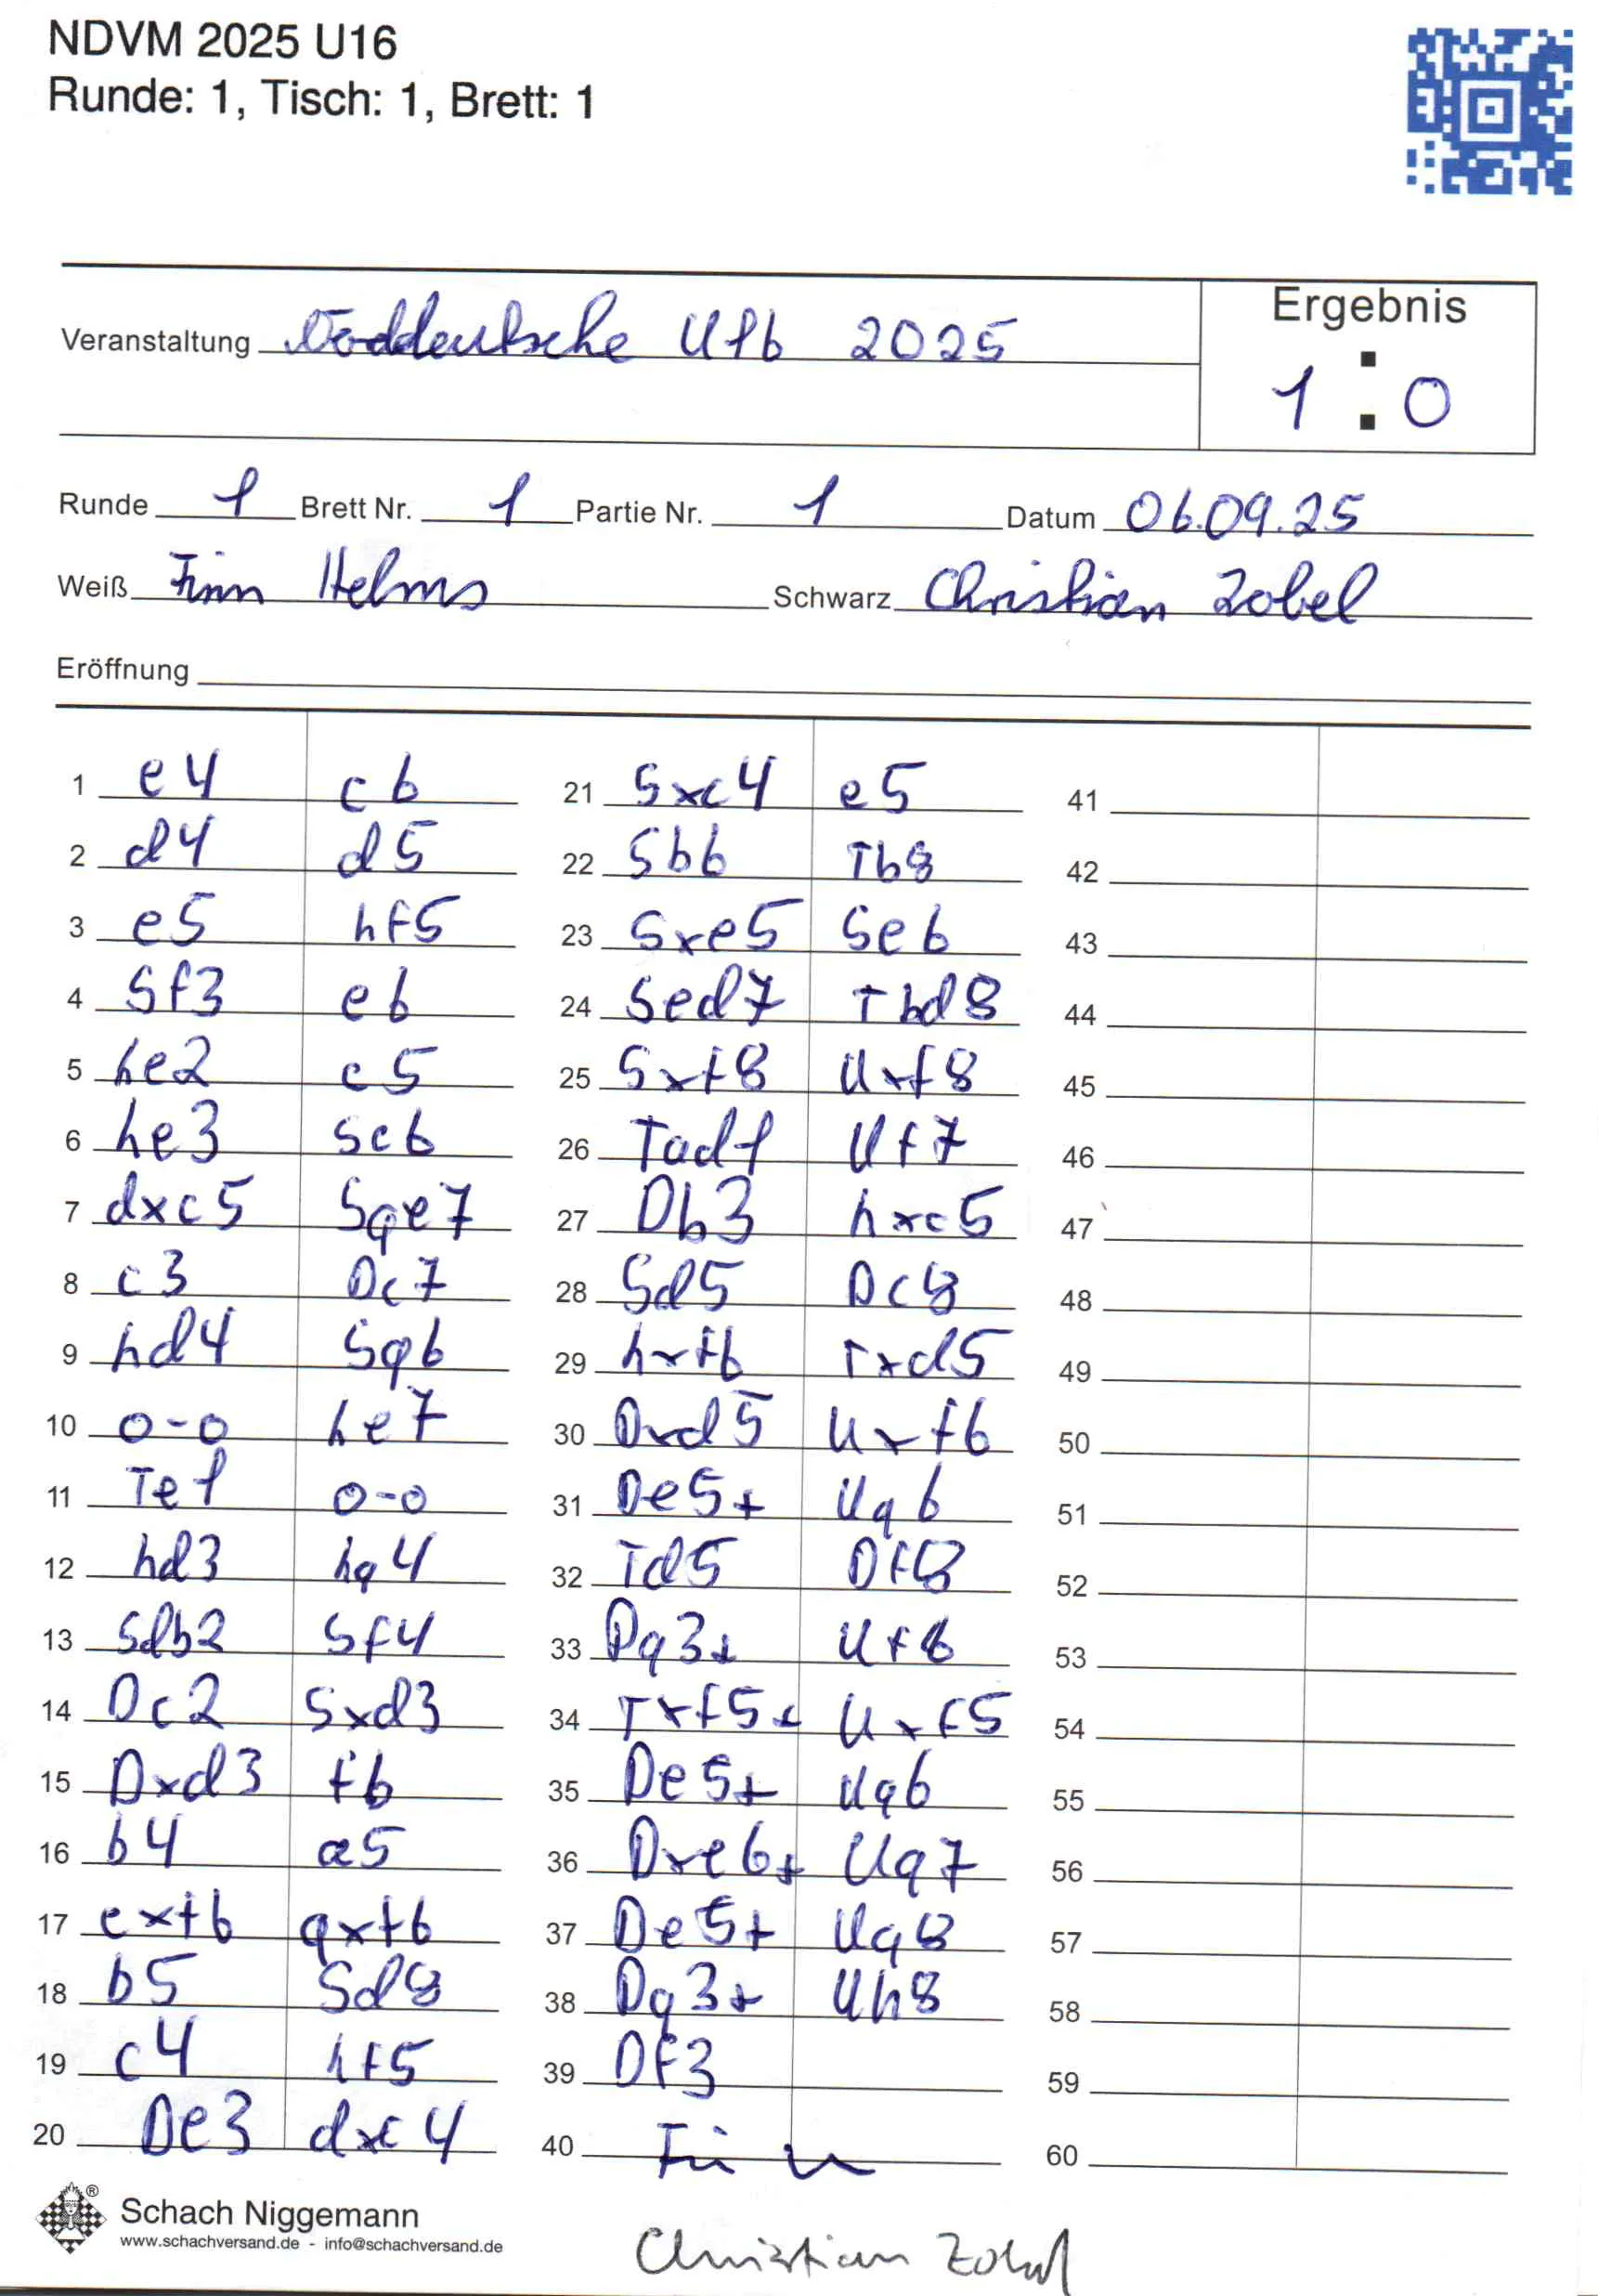 NDVM 2025 U16
Runde: 1, Tisch: 1, Brett: 1
Ergebnis
Veranstaltung Noddeutsche U16 2025
1 : 0
Runde 1 Brett Nr. 1 Partie Nr. 1 Datum 06.09.25
Weiß Finn Helms Schwarz Christian Zobel
Eröffnung
1 e4 c6 21 Sxc4 e5 41
2 d4 d5 22 Sb6 Tb8 42
3 e5 hf5 23 Sxe5 Se6 43
4 Sf3 e6 24 Sed7 Tbd8 44
5 he2 c5 25 Sxf8 Uxf8 45
6 he3 Sc6 26 Tad1 Uf7 46
7 dxc5 Sge7 27 Db3 hxc5 47
8 c3 Dc7 28 Sd5 Dc8 48
9 hd4 Sg6 29 hxf6 Txd5 49
10 0-0 he7 30 Dxd5 Uxf6 50
11 Te1 0-0 31 De5+ Ug6 51
12 hd3 hg4 32 Td5 Df8 52
13 Sdb2 Sf4 33 Dg3+ Uf6 53
14 Dc2 Sxd3 34 Txf5+ Uxf5 54
15 Dxd3 f6 35 De5+ Ug6 55
16 b4 a5 36 Dxe6+ Ug7 56
17 exf6 gxf6 37 De5+ Ug8 57
18 b5 Sd8 38 Dg3+ Uh8 58
19 c4 hf5 39 Df3 59
20 De3 dxc4 40 Finn 60
Schach Niggemann
www.schachversand.de - info@schachversand.de
Christian Zobel